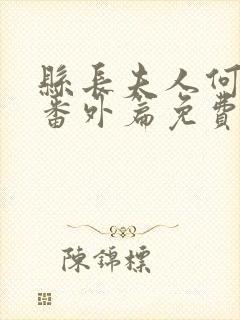 縣長夫人何
番外篇免費
陳錦標